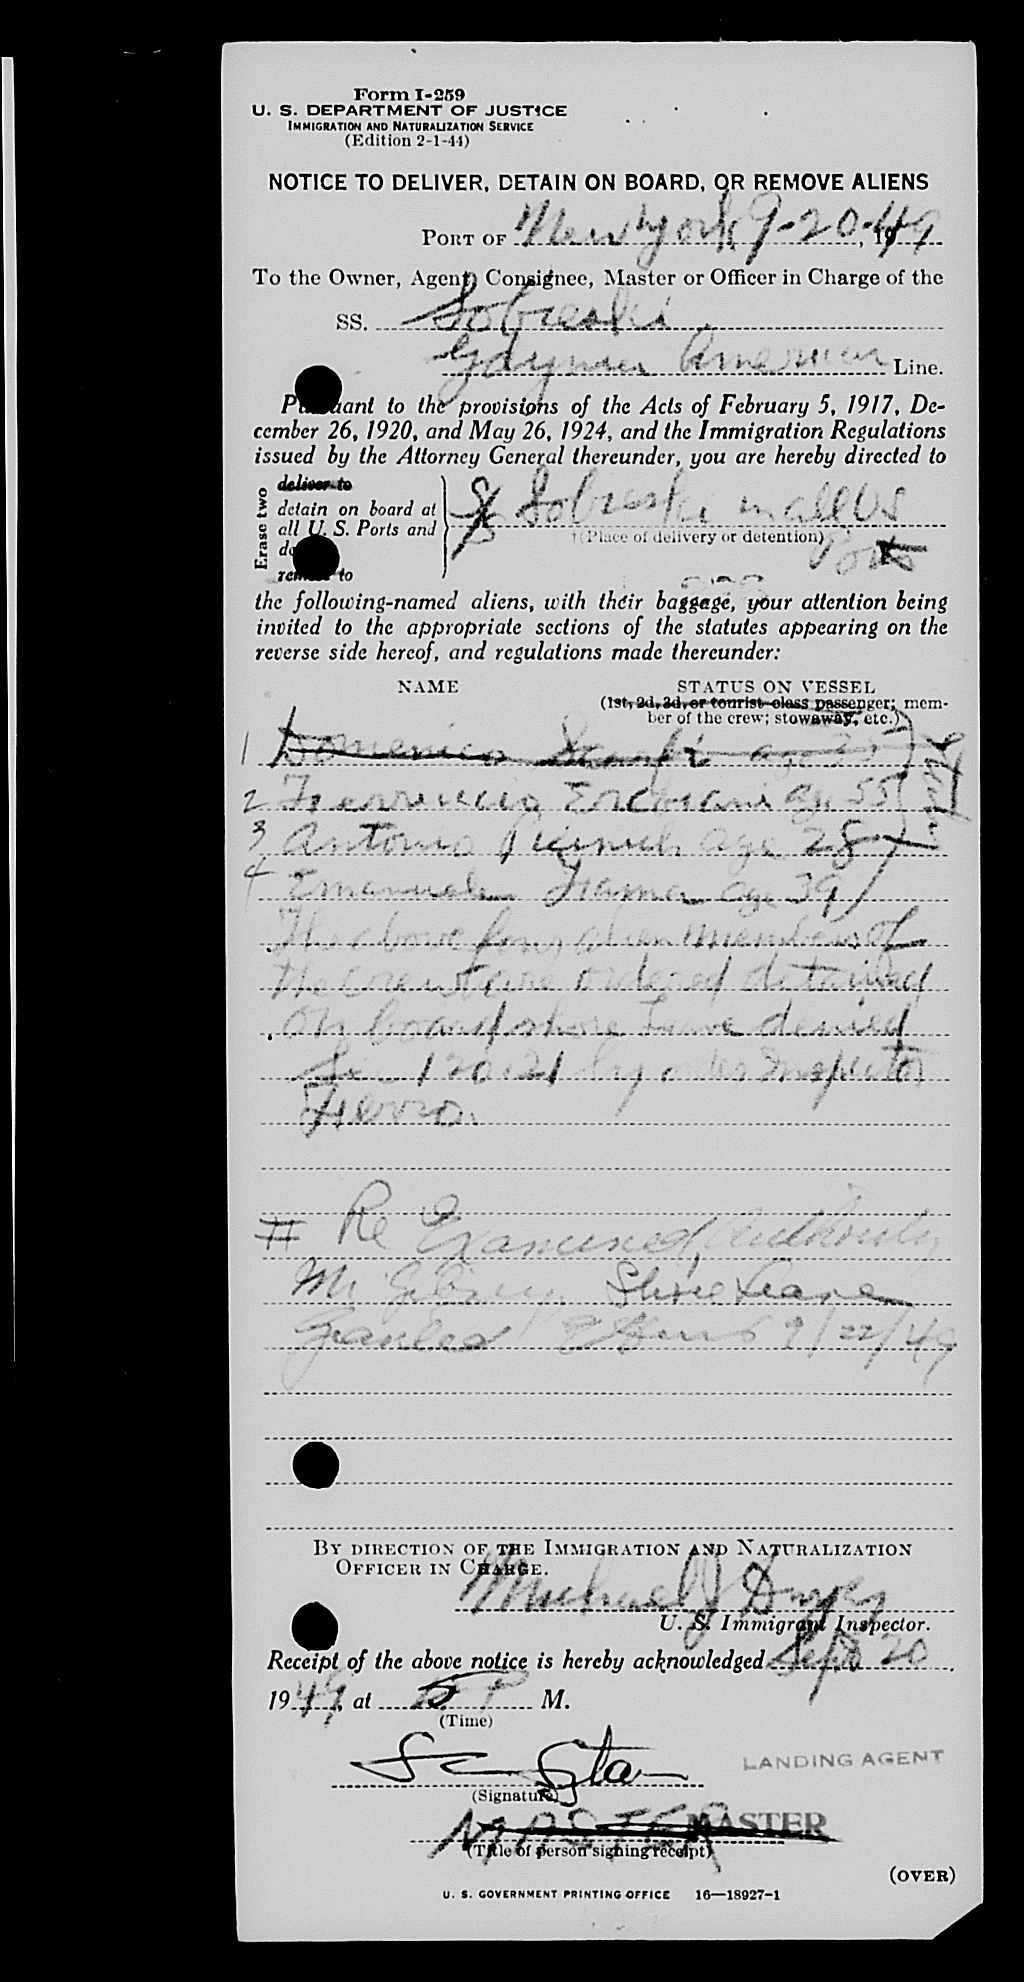 Form I-259
U. S. DEPARTMENT OF JUSTICE
IMMIGRATION AND NATURALIZATION SERVICE
(Edition 2-1-44)
NOTICE TO DELIVER, DETAIN ON BOARD, OR REMOVE ALIENS
PORT OF New York, 9-20-, 1949
To the Owner, Agent, Consignee, Master or Officer in Charge of the
SS. Sobieski
Gdynia American Line.
Pursuant to the provisions of the Acts of February 5, 1917, De-
cember 26, 1920, and May 26, 1924, and the Immigration Regulations
issued by the Attorney General thereunder, you are hereby directed to
Erase two
deliver to
detain on board at
all U. S. Ports and
remove to
SS Sobieski in all US
Ports
†(Place of delivery or detention)
the following-named aliens, with their baggage, your attention being
invited to the appropriate sections of the statutes appearing on the
reverse side hereof, and regulations made thereunder:
NAME
STATUS ON VESSEL
(1st, 2d, 3d, or tourist-class passenger; mem-
ber of the crew; stowaway, etc.)
1 Domenico age 35
2 age 55
3 Antonio age 28
4 Emanuele age 39
The above four alien members of
the crew are ordered detained
on board shore leave denied
120.21 by order Inspector
Fierro.
# Re Examined, Authority
Mr Shore Leave
Granted 9/22/49
BY DIRECTION OF THE IMMIGRATION AND NATURALIZATION
OFFICER IN CHARGE.
Michael J Dwyer
U. S. Immigrant Inspector.
Receipt of the above notice is hereby acknowledged Sept 20
1949, at 5 P M.
(Time)
LANDING AGENT
(Signature)
MASTER MASTER
(Title of person signing receipt)
(OVER)
U. S. GOVERNMENT PRINTING OFFICE 16—18927-1